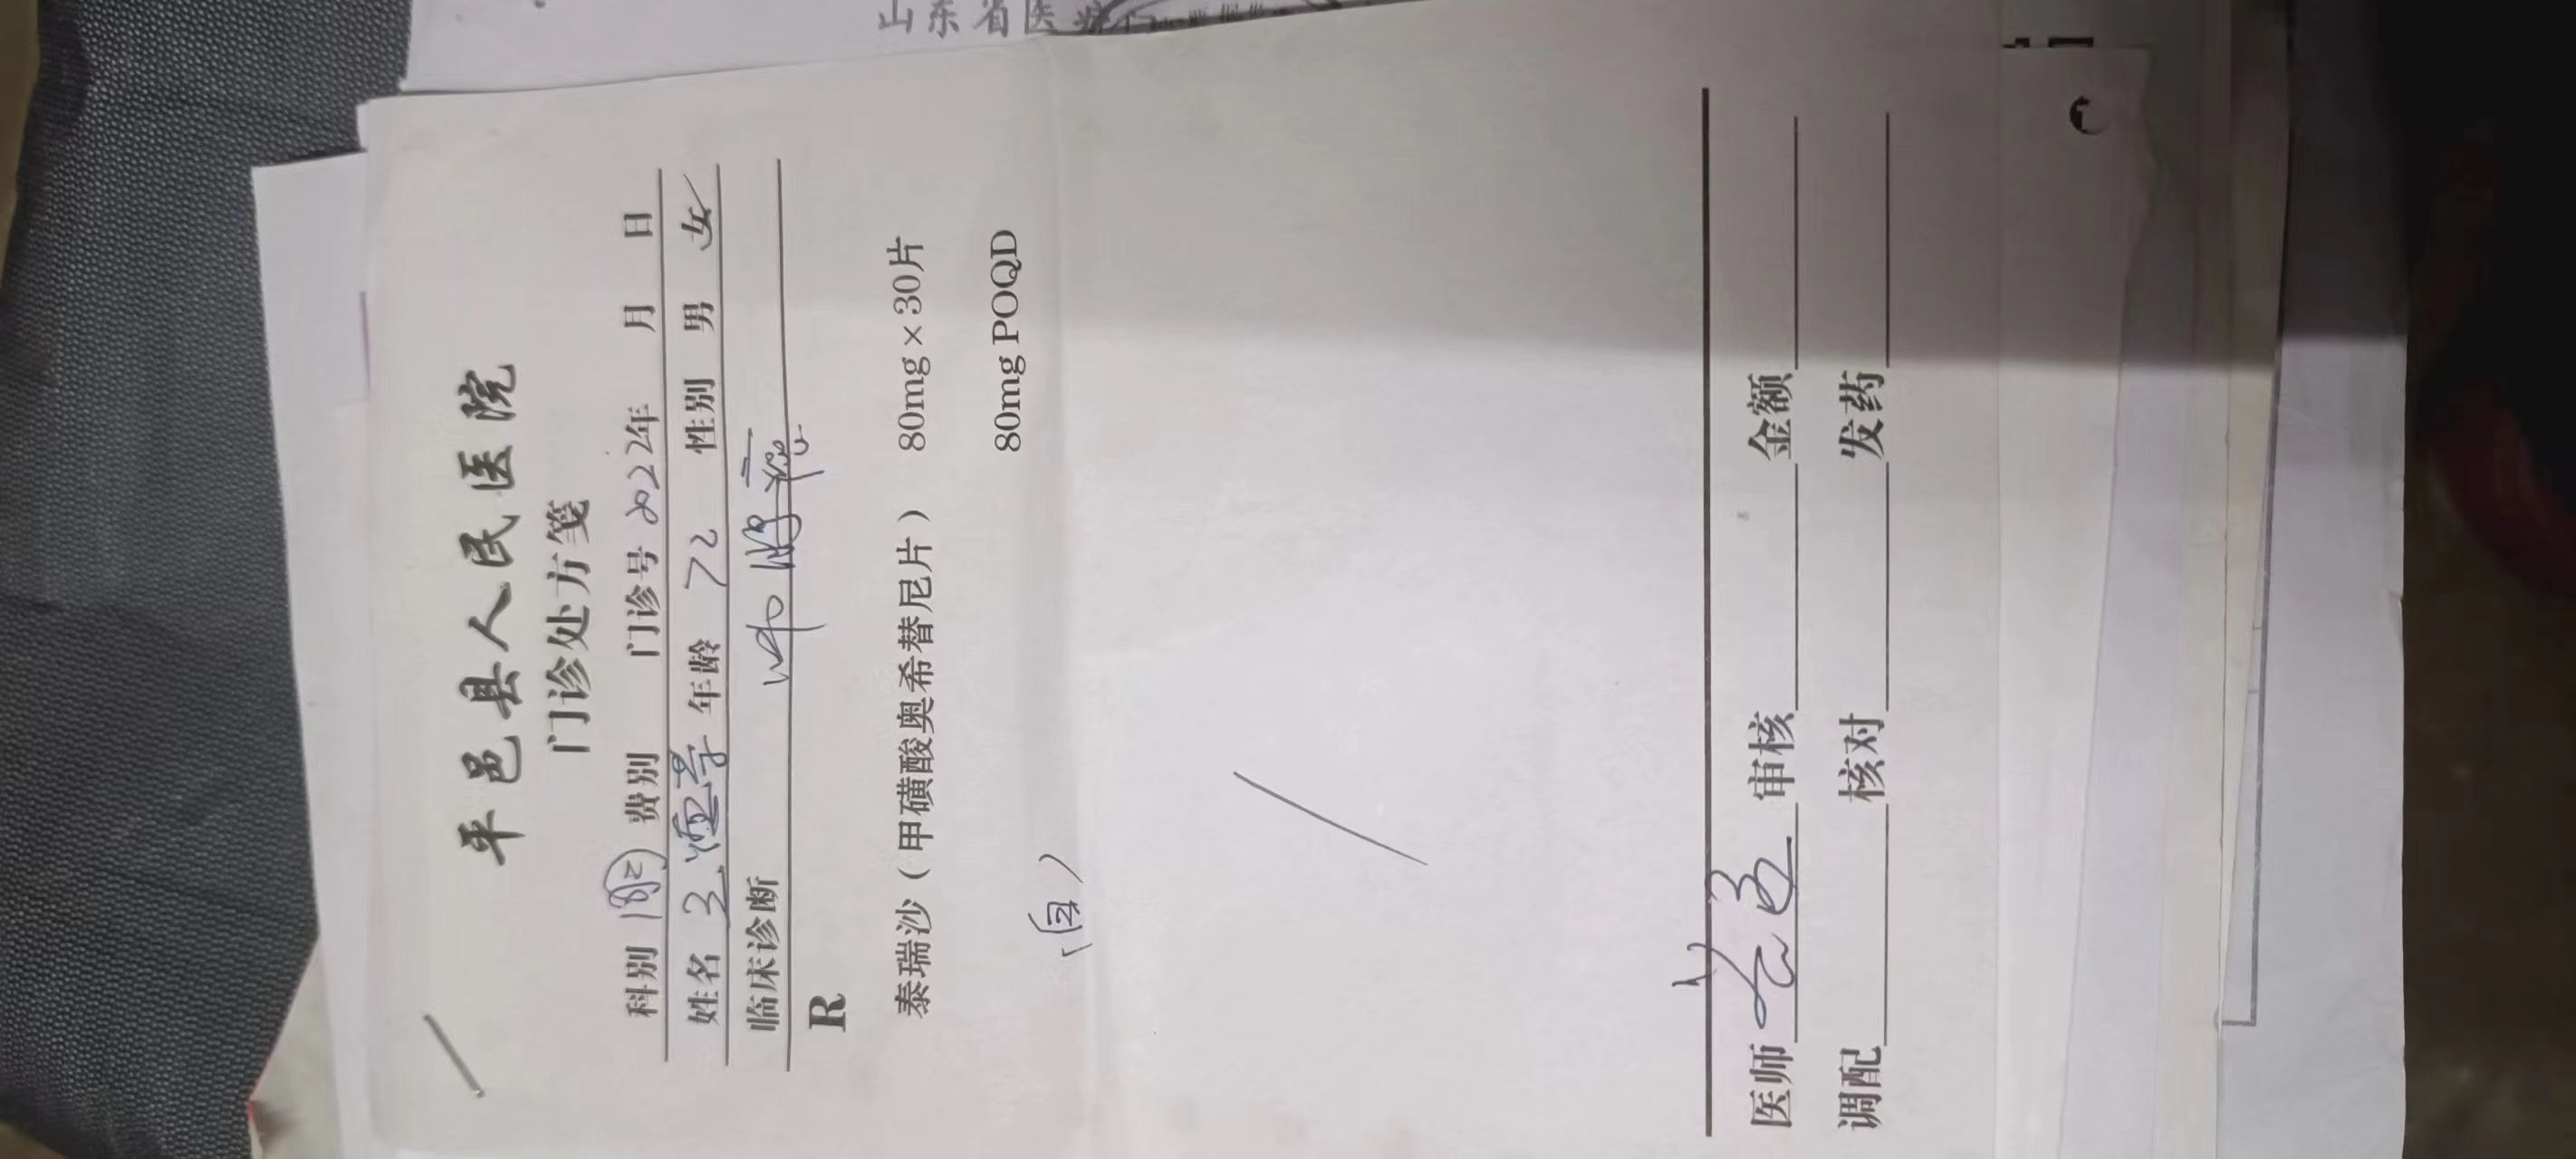 山东省医疗门
平邑县人民医院
门诊处方笺
科别 费别 门诊号 2022年 月 日
姓名 年龄 72 性别 男 女✓
临床诊断
R
泰瑞沙（甲磺酸奥希替尼片） 80mg×30片
80mg POQD
医师 审核 金额
调配 核对 发药